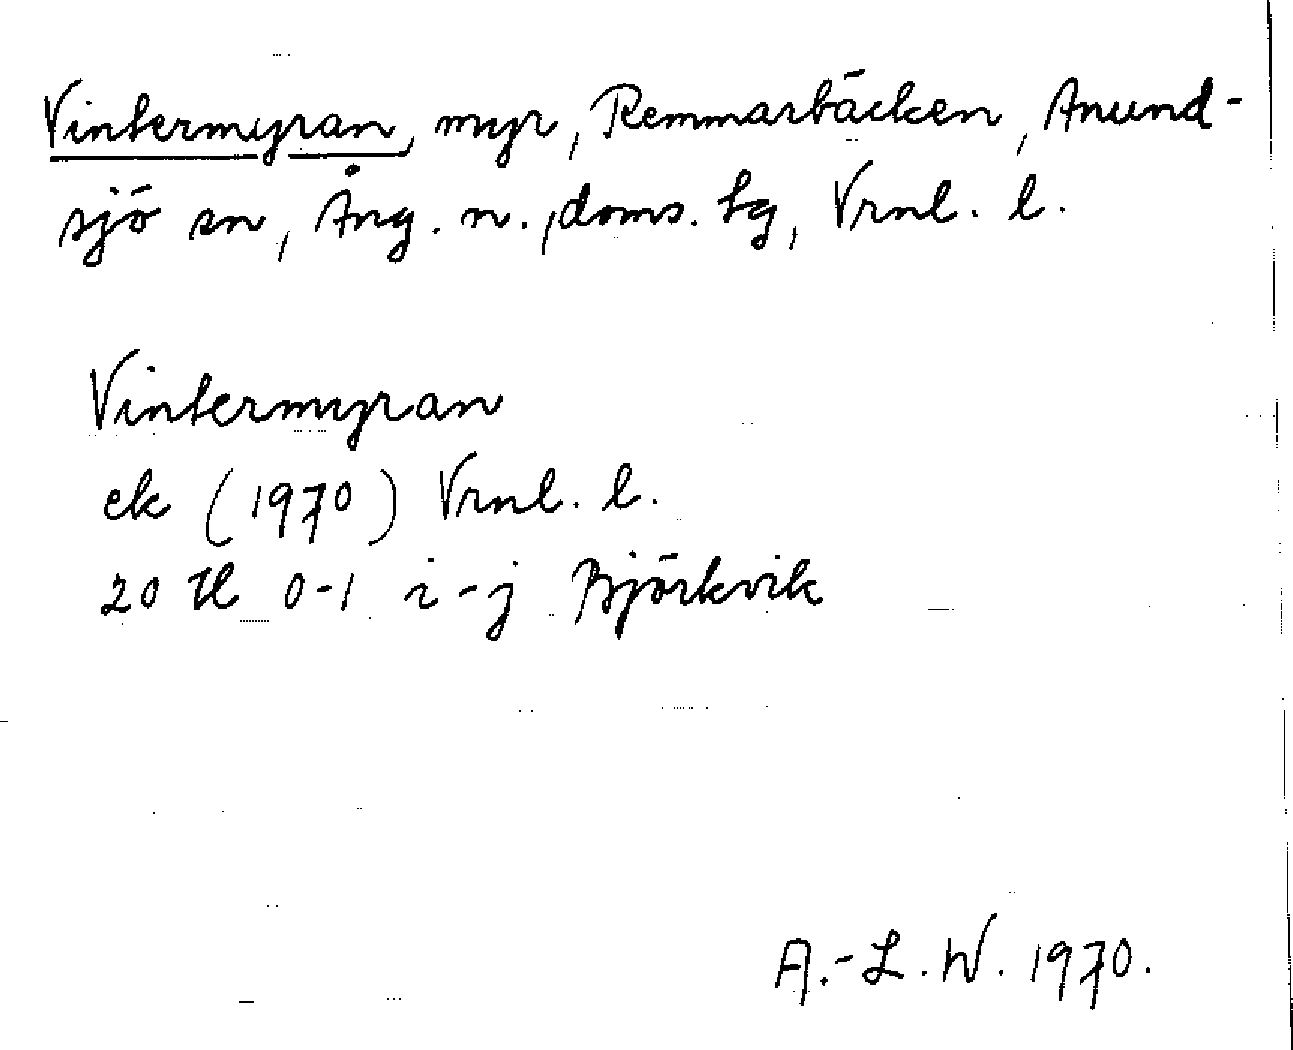 Vintermyran, myr, Remmarbäcken, Anund-
sjö sn, Ång. n., doms. hg, Vrnl. l.
Vintermyran
ek (1970) Vrnl. l.
20 H 0-1 i-j Björkvik
A.-L. W. 1970.